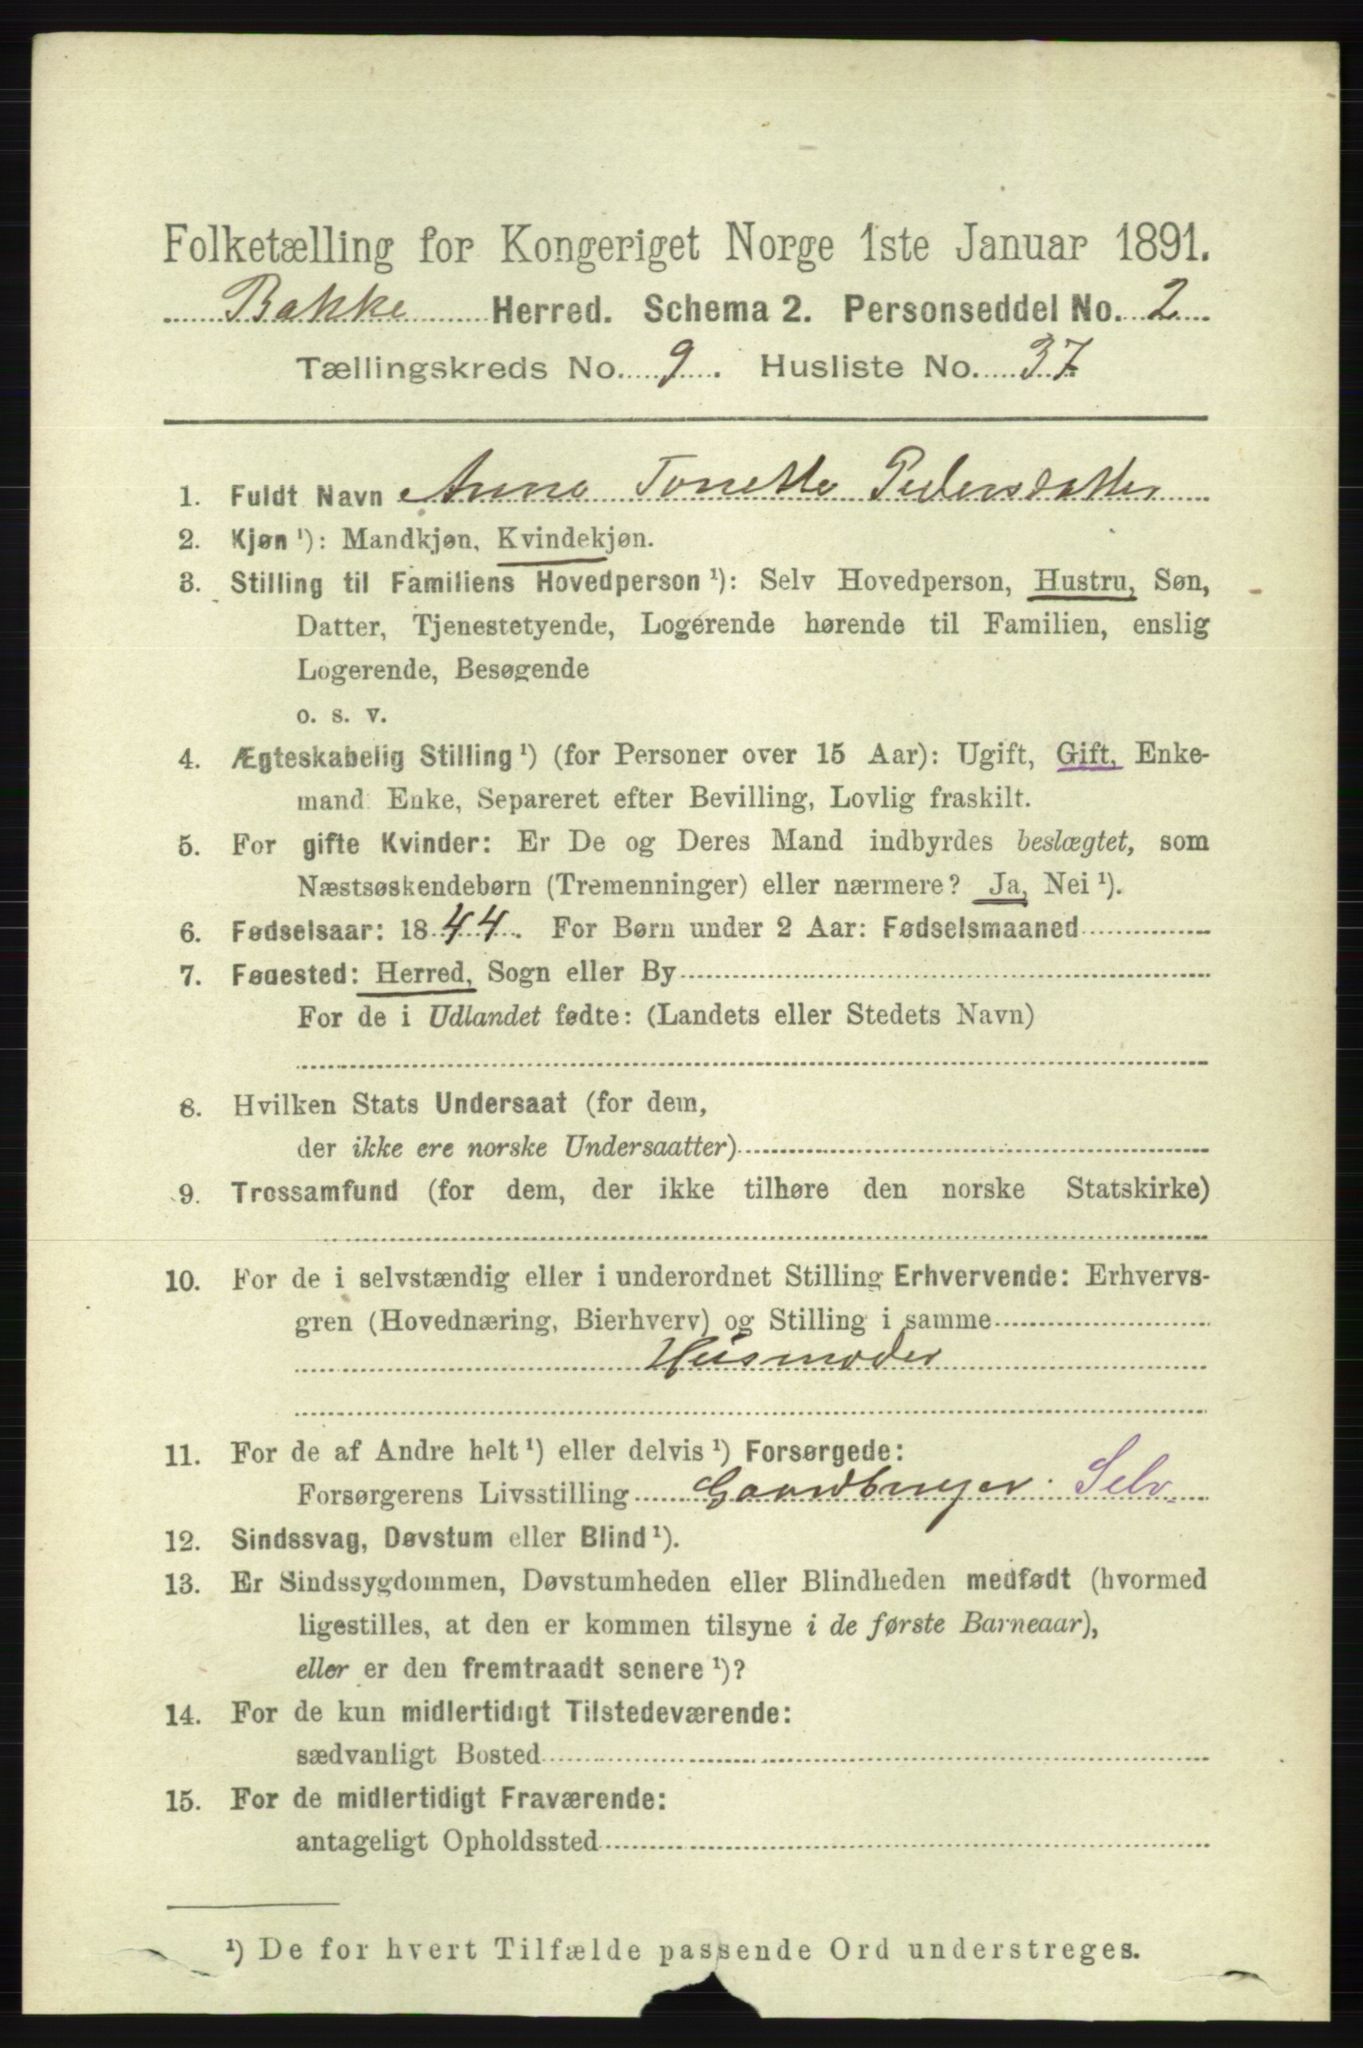 Folketælling for Kongeriget Norge 1ste Januar 1891.
Bakke Herred. Schema 2. Personseddel No. 2
Tællingskreds No. 9. Husliste No. 37
1. Fuldt Navn Anna Tonette Pedersdatter
2. Kjøn ¹): Mandkjøn, Kvindekjøn.
3. Stilling til Familiens Hovedperson ¹): Selv Hovedperson, Hustru, Søn,
Datter, Tjenestetyende, Logerende hørende til Familien, enslig
Logerende, Besøgende
o. s. v.
4. Ægteskabelig Stilling ¹) (for Personer over 15 Aar): Ugift, Gift, Enke-
mand Enke, Separeret efter Bevilling, Lovlig fraskilt.
5. For gifte Kvinder: Er De og Deres Mand indbyrdes beslægtet, som
Næstsøskendebørn (Tremenninger) eller nærmere? Ja, Nei ¹).
6. Fødselsaar: 1844. For Børn under 2 Aar: Fødselsmaaned
7. Fødested: Herred, Sogn eller By
For de i Udlandet fødte: (Landets eller Stedets Navn)
8. Hvilken Stats Undersaat (for dem,
der ikke ere norske Undersaatter)
9. Trossamfund (for dem, der ikke tilhøre den norske Statskirke)
10. For de i selvstændig eller i underordnet Stilling Erhvervende: Erhvervs-
gren (Hovednæring, Bierhverv) og Stilling i samme
Husmoder
11. For de af Andre helt ¹) eller delvis ¹) Forsørgede:
Forsørgerens Livsstilling Gaardbruger. Selv.
12. Sindssvag, Døvstum eller Blind ¹).
13. Er Sindssygdommen, Døvstumheden eller Blindheden medfødt (hvormed
ligestilles, at den er kommen tilsyne i de første Barneaar),
eller er den fremtraadt senere ¹)?
14. For de kun midlertidigt Tilstedeværende:
sædvanligt Bosted
15. For de midlertidigt Fraværende:
antageligt Opholdssted
¹) De for hvert Tilfælde passende Ord understreges.